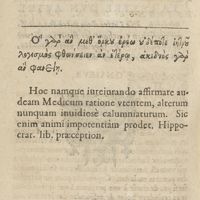 Ὃ γὰρ ἂν μεθ' ὅρκου ἐρέω οὐδέποτε ἰητροῦ
λογισμὸς φθονήσειεν ἂν ἑτέρῳ, ἀκιδνὸς γὰρ
ἂν φανείη.
Hoc namque iureiurando affirmare au-
deam Medicum ratione vtentem, alterum
nunquam inuidiosè calumniaturum. Sic
enim animi impotentiam prodet. Hippo-
crat. lib. præception.